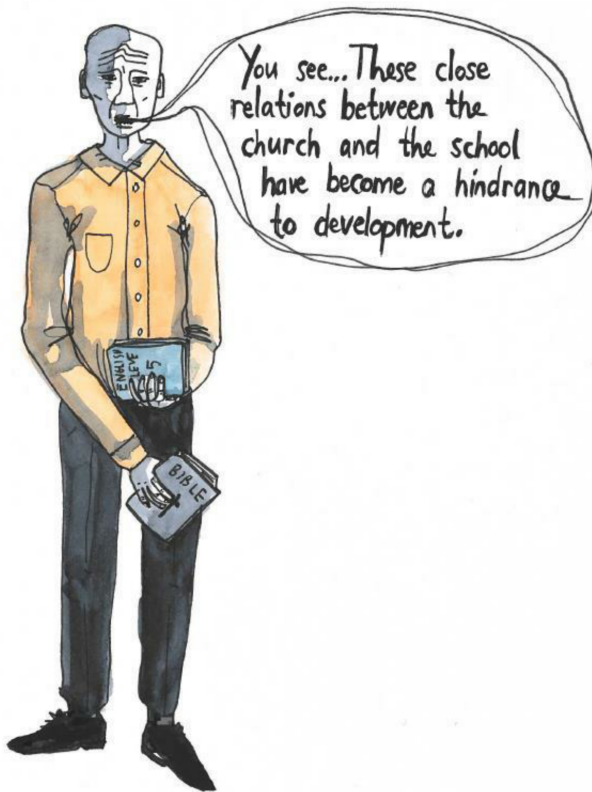 You see... These close
relations between the
church and the school
have become a hindrance
to development.
ENGLISH
LEVE
5
BIBLE